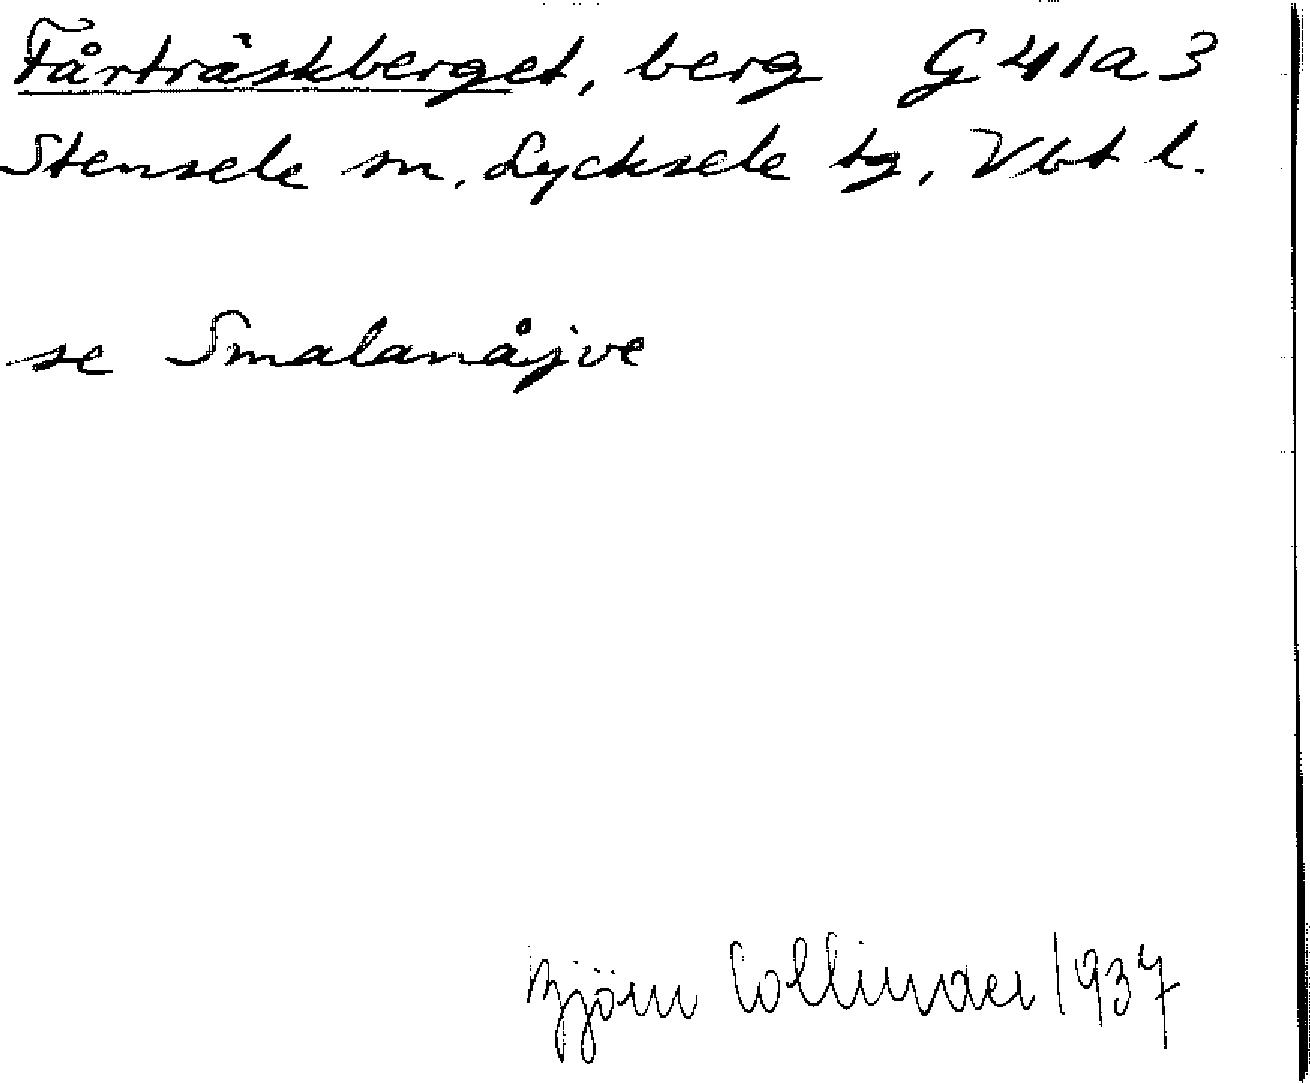 Fårträskberget, berg G41a3
Stensele sn, Lycksele tg, Vbt l.
se Smalanåjve
Björn Collinder 1937